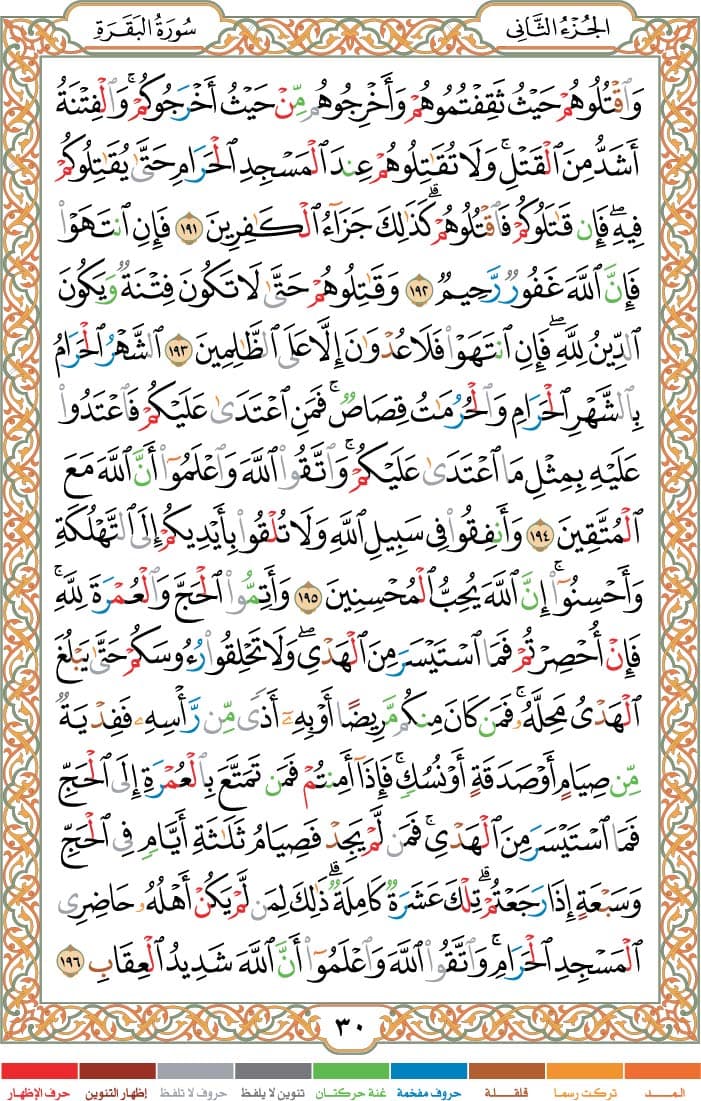 الجُزْءُ الثَّانِي
سُورَةُ البَقَرَةِ
وَٱقْتُلُوهُمْ حَيْثُ ثَقِفْتُمُوهُمْ وَأَخْرِجُوهُم مِّنْ حَيْثُ أَخْرَجُوكُمْ ۚ وَٱلْفِتْنَةُ
أَشَدُّ مِنَ ٱلْقَتْلِ ۚ وَلَا تُقَٰتِلُوهُمْ عِندَ ٱلْمَسْجِدِ ٱلْحَرَامِ حَتَّىٰ يُقَٰتِلُوكُمْ
فِيهِ ۖ فَإِن قَٰتَلُوكُمْ فَٱقْتُلُوهُمْ ۗ كَذَٰلِكَ جَزَآءُ ٱلْكَٰفِرِينَ ١٩١ فَإِنِ ٱنتَهَوْا۟
فَإِنَّ ٱللَّهَ غَفُورٌ رَّحِيمٌ ١٩٢ وَقَٰتِلُوهُمْ حَتَّىٰ لَا تَكُونَ فِتْنَةٌ وَيَكُونَ
ٱلدِّينُ لِلَّهِ ۖ فَإِنِ ٱنتَهَوْا۟ فَلَا عُدْوَٰنَ إِلَّا عَلَى ٱلظَّٰلِمِينَ ١٩٣ ٱلشَّهْرُ ٱلْحَرَامُ
بِٱلشَّهْرِ ٱلْحَرَامِ وَٱلْحُرُمَٰتُ قِصَاصٌ ۚ فَمَنِ ٱعْتَدَىٰ عَلَيْكُمْ فَٱعْتَدُوا۟
عَلَيْهِ بِمِثْلِ مَا ٱعْتَدَىٰ عَلَيْكُمْ ۚ وَٱتَّقُوا۟ ٱللَّهَ وَٱعْلَمُوٓا۟ أَنَّ ٱللَّهَ مَعَ
ٱلْمُتَّقِينَ ١٩٤ وَأَنفِقُوا۟ فِى سَبِيلِ ٱللَّهِ وَلَا تُلْقُوا۟ بِأَيْدِيكُمْ إِلَى ٱلتَّهْلُكَةِ
وَأَحْسِنُوٓا۟ ۛ إِنَّ ٱللَّهَ يُحِبُّ ٱلْمُحْسِنِينَ ١٩٥ وَأَتِمُّوا۟ ٱلْحَجَّ وَٱلْعُمْرَةَ لِلَّهِ ۚ
فَإِنْ أُحْصِرْتُمْ فَمَا ٱسْتَيْسَرَ مِنَ ٱلْهَدْىِ ۖ وَلَا تَحْلِقُوا۟ رُءُوسَكُمْ حَتَّىٰ يَبْلُغَ
ٱلْهَدْىُ مَحِلَّهُۥ ۚ فَمَن كَانَ مِنكُم مَّرِيضًا أَوْ بِهِۦٓ أَذًى مِّن رَّأْسِهِۦ فَفِدْيَةٌ
مِّن صِيَامٍ أَوْ صَدَقَةٍ أَوْ نُسُكٍ ۚ فَإِذَآ أَمِنتُمْ فَمَن تَمَتَّعَ بِٱلْعُمْرَةِ إِلَى ٱلْحَجِّ
فَمَا ٱسْتَيْسَرَ مِنَ ٱلْهَدْىِ ۚ فَمَن لَّمْ يَجِدْ فَصِيَامُ ثَلَٰثَةِ أَيَّامٍ فِى ٱلْحَجِّ
وَسَبْعَةٍ إِذَا رَجَعْتُمْ ۗ تِلْكَ عَشَرَةٌ كَامِلَةٌ ۗ ذَٰلِكَ لِمَن لَّمْ يَكُنْ أَهْلُهُۥ حَاضِرِى
ٱلْمَسْجِدِ ٱلْحَرَامِ ۚ وَٱتَّقُوا۟ ٱللَّهَ وَٱعْلَمُوٓا۟ أَنَّ ٱللَّهَ شَدِيدُ ٱلْعِقَابِ ١٩٦
٣٠
المــد تركت رسما قلقلة حروف مفخمة غنة حركتان تنوين لا يلفظ حروف لا تلفظ إظهار التنوين حرف الإظهار